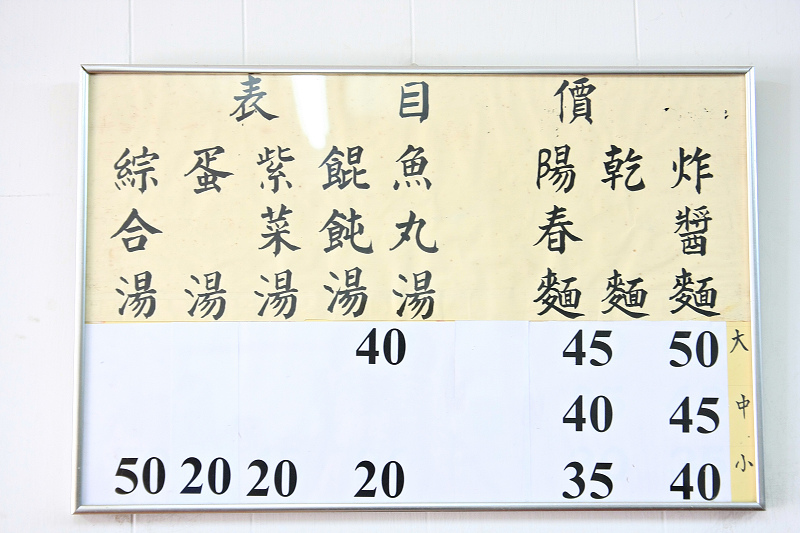 價目表
炸醬麵
乾麵
陽春麵
魚丸湯
餛飩湯
紫菜湯
蛋湯
綜合湯
大 50 45 40
中 45 40
小 40 35 20 20 20 50